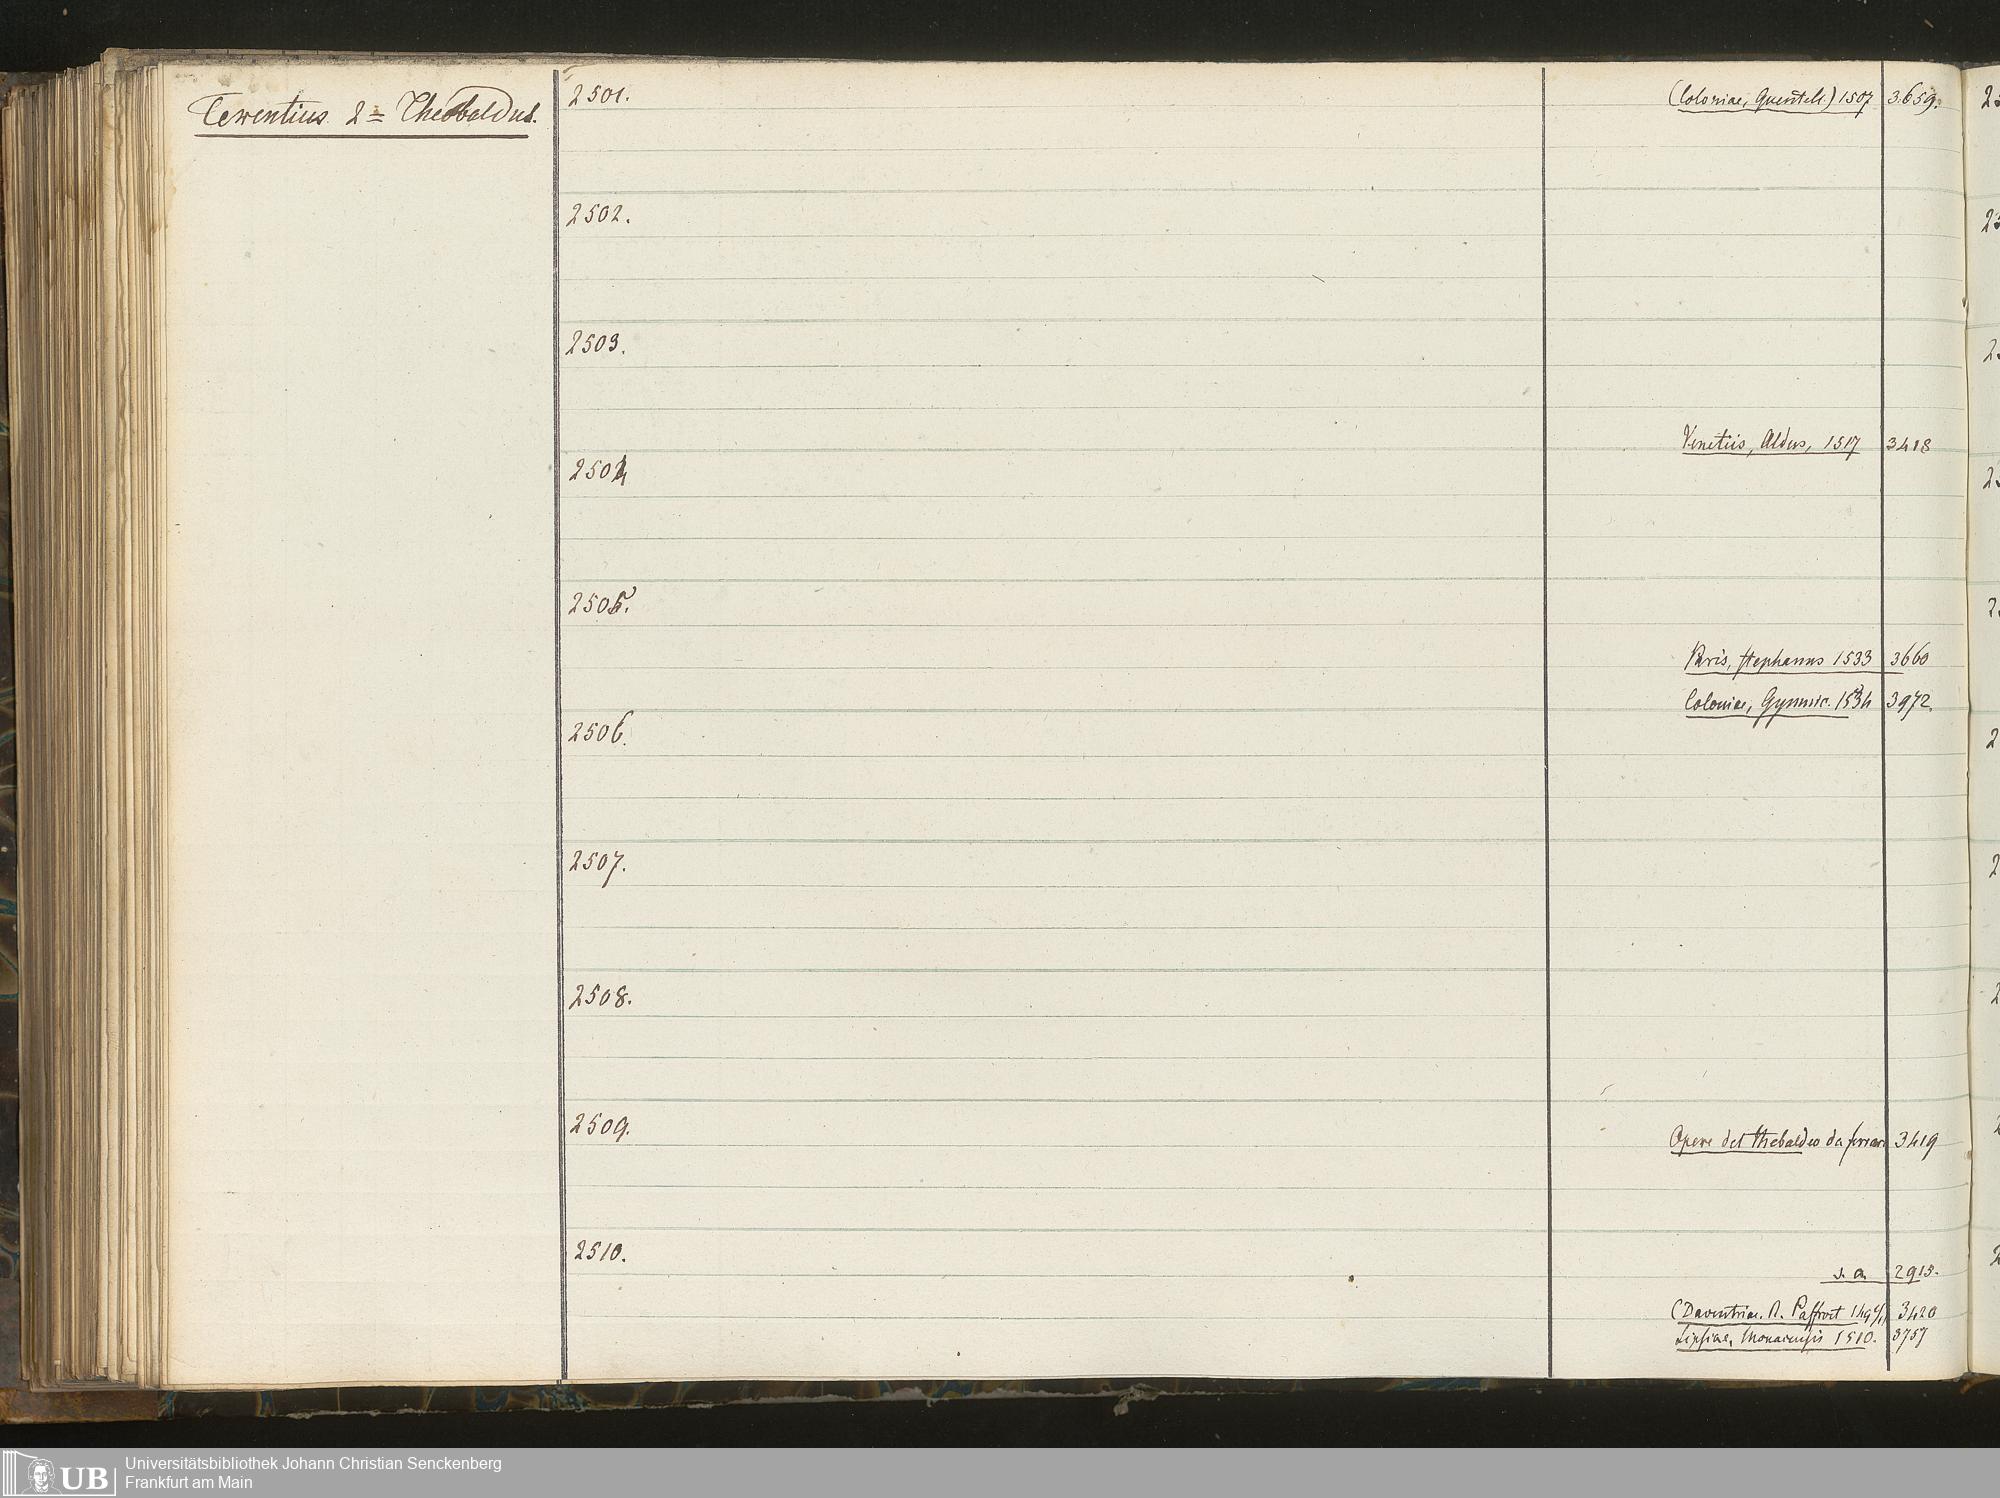 Terentius 2 = Theobaldus.
2501.
(Coloniae, Quentell.) 1507 3.659.
2502.
2503.
Venetiis, Aldus, 1517 3418
2504
2505.
Paris, Stephanus 1533 3660
Coloniae, Gymnic. 1534 3972.
2506.
2507.
2508.
2509.
Opere del Thebaldeo da ferrara 3419
2510.
s. a. 2915.
(Daventriae. R. Paffroet 3420
Lipsiae, Monacensis 1510. 3757
UB
Universitätsbibliothek Johann Christian Senckenberg
Frankfurt am Main